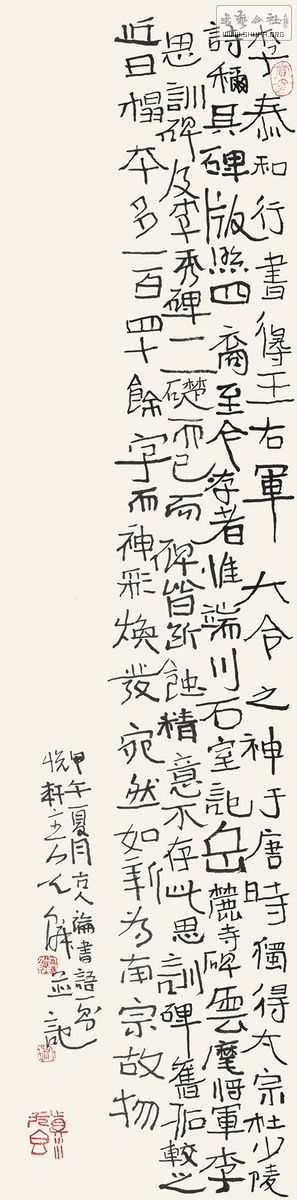 李泰和行書得王右軍大令之神于唐時獨得太宗杜少陵
詩稱其碑版照四裔至今存者惟端州石室記岳麓寺碑雲麾將軍李
思訓碑及李秀碑二礎而已而碑皆斷蝕精意不存此思訓碑舊拓較之
近日榻本多一百四十餘字而神彩煥發宛然如新為南宗故物
甲午夏月古人論書語一節
悅軒主人 並記
WWW.SHUFA.ORG